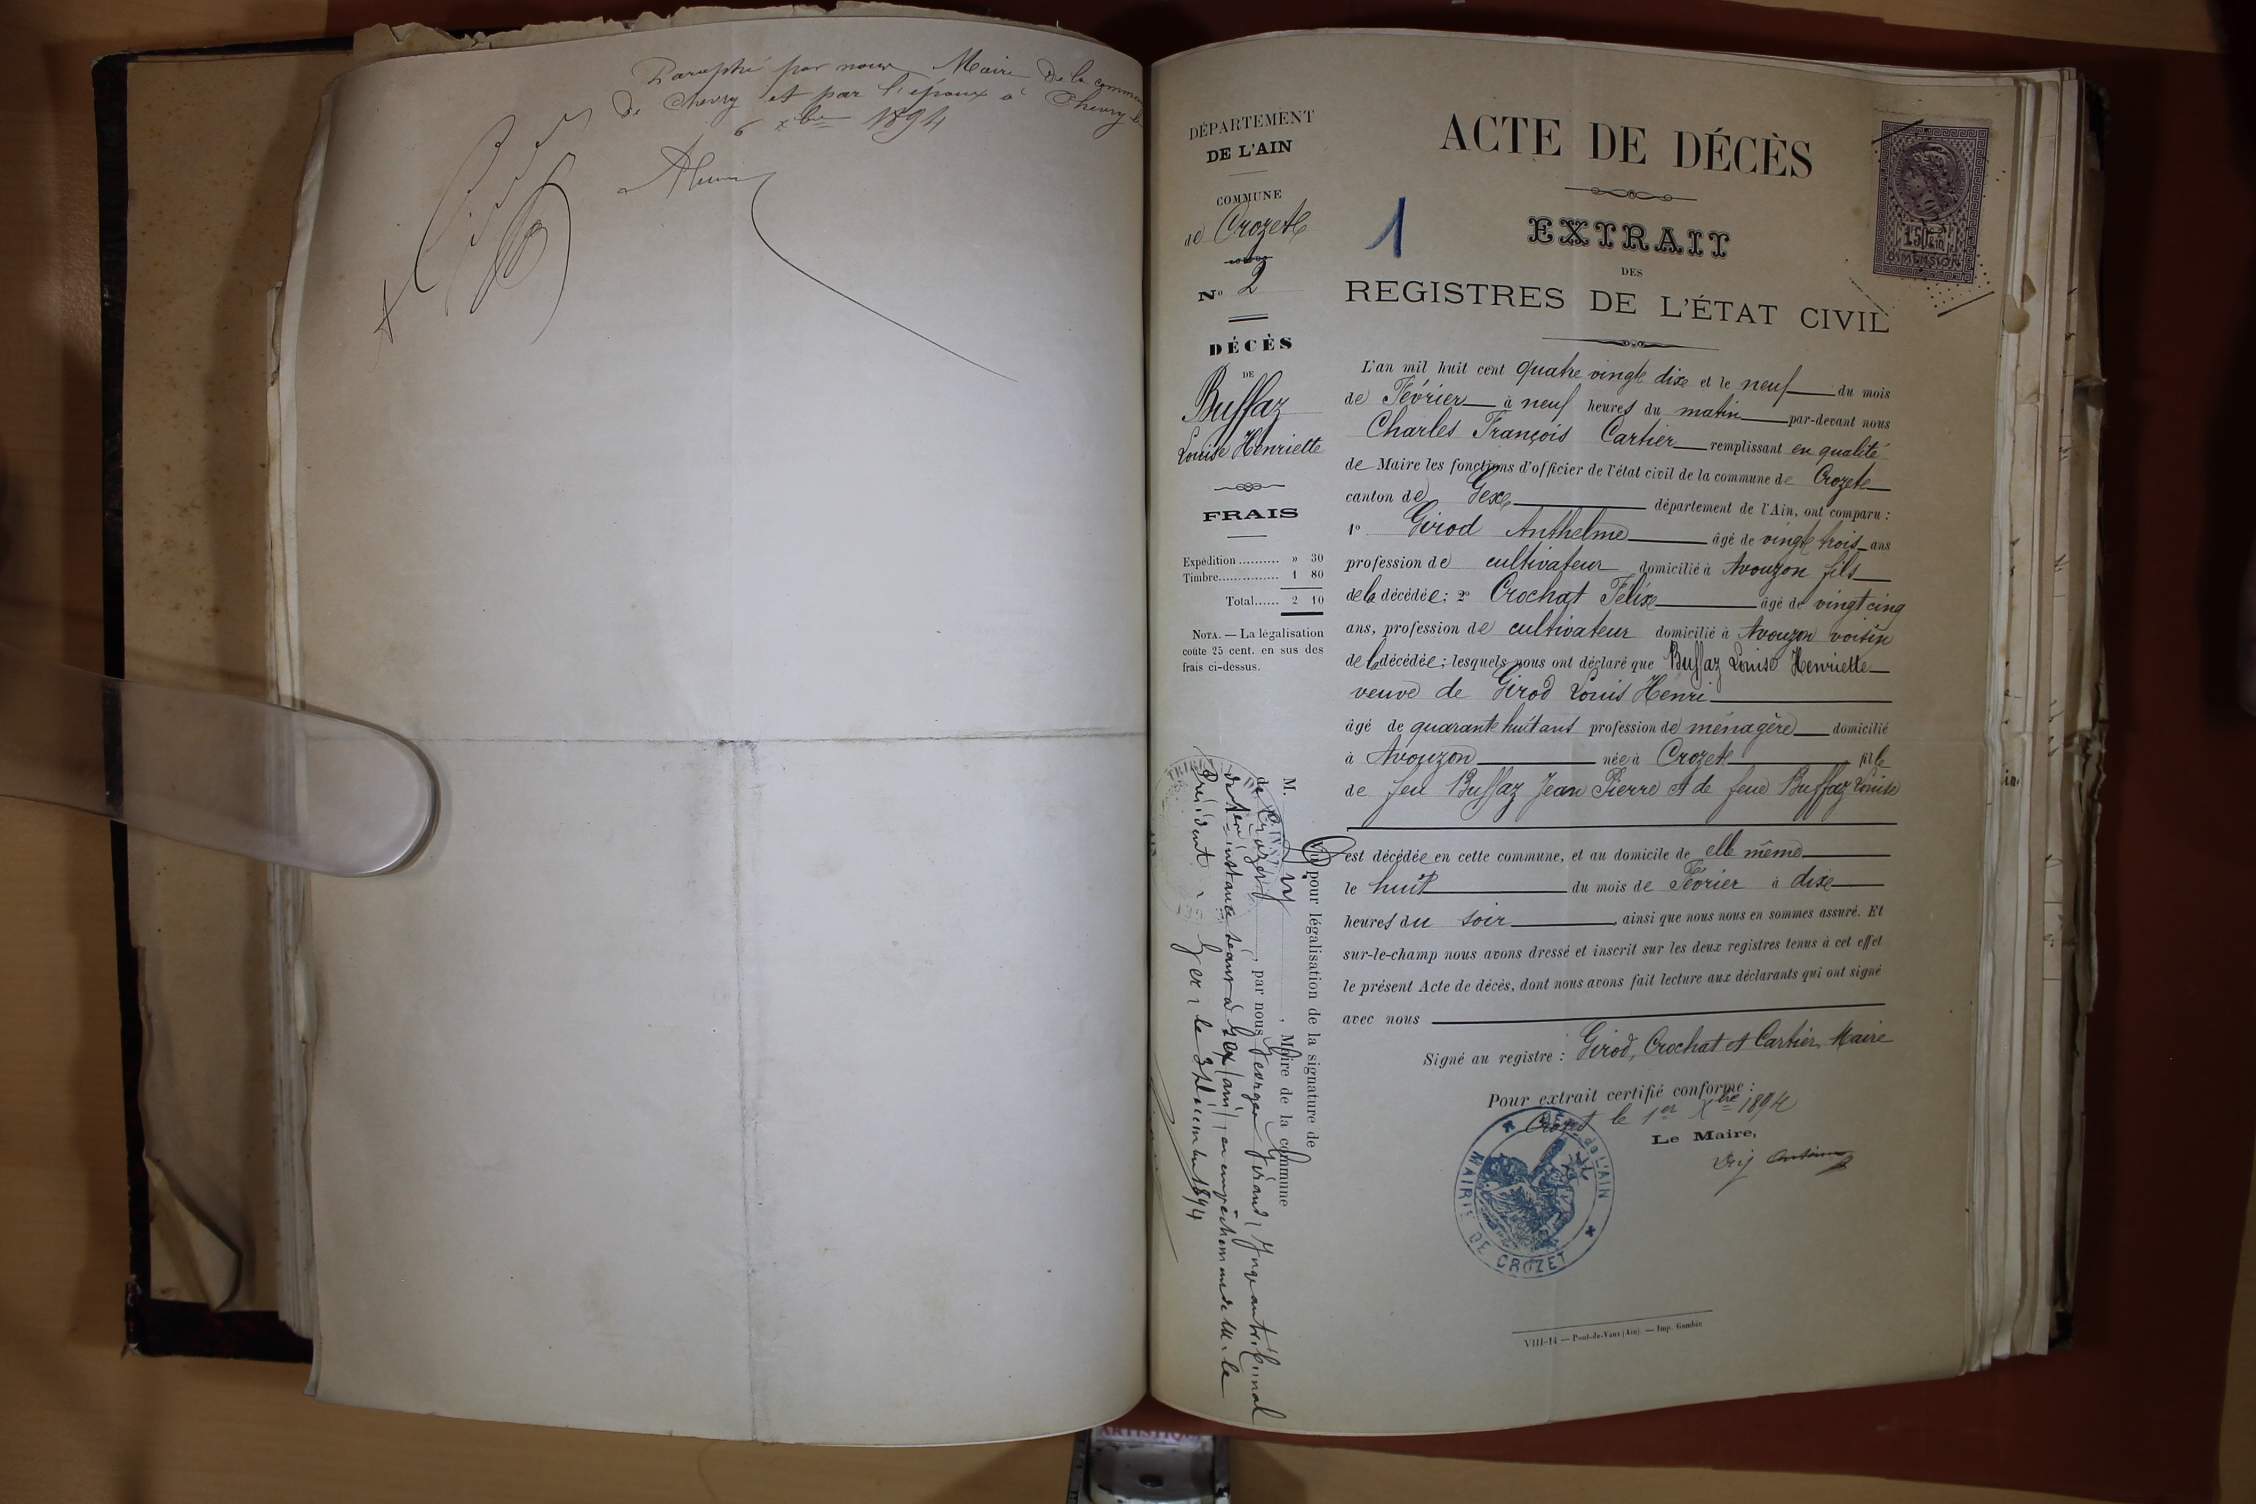 Paraphé par nous Maire De la commune
de Chevry et par l'époux à Chevry le
6 xbre 1894
DÉPARTEMENT
DE L'AIN
COMMUNE
de Crozet
No 2
DÉCÈS
DE
Buffaz
Louise Henriette
FRAIS
Expédition .......... » 30
Timbre............... 1 80
Total...... 2 10
NOTA. — La légalisation
coûte 25 cent. en sus des
frais ci-dessus.
1
ACTE DE DÉCÈS
EXTRAIT
DES
REGISTRES DE L'ÉTAT CIVIL
DIMENSION
L'an mil huit cent quatre vingt dix et le neuf du mois
de Février à neuf heures du matin par-devant nous
Charles François Cartier remplissant en qualité
de Maire les fonctions d'officier de l'état civil de la commune de Crozet
canton de Gex département de l'Ain, ont comparu :
1o Girod Anthelme âgé de vingt trois ans
profession de cultivateur domicilié à Avouzon fils
de la décédée; 2o Crochat Félix âgé de vingt cinq
ans, profession de cultivateur domicilié à Avouzon voisin
de la décédée; lesquels nous ont déclaré que Buffaz Louise Henriette
veuve de Girod Louis Henri
âgé de quarante huit ans profession de ménagère domicilié
à Avouzon née à Crozet fille
de feu Buffaz Jean Pierre et de feue Buffaz Louise
est décédée en cette commune, et au domicile de elle même
le huit du mois de Février à dix
heures du soir, ainsi que nous nous en sommes assuré. Et
sur-le-champ nous avons dressé et inscrit sur les deux registres tenus à cet effet
le présent Acte de décès, dont nous avons fait lecture aux déclarants qui ont signé
avec nous
Signé au registre : Girod, Crochat et Cartier, Maire
Pour extrait certifié conforme :
Crozet le 1er Xbre 1894
Le Maire,
MAIRIE DE CROZET
DE L'AIN
VIII-14 — Pont-de-Vaux (Ain). — Imp. Gambin
Vu pour légalisation de la signature de
M. , Maire de la commune
de Crozet, par nous Georges Giraud, Juge au tribunal
de 1ère instance séant à Gex (ain), en empêchement de M. le
Président. Gex, le 3 Décembre 1894